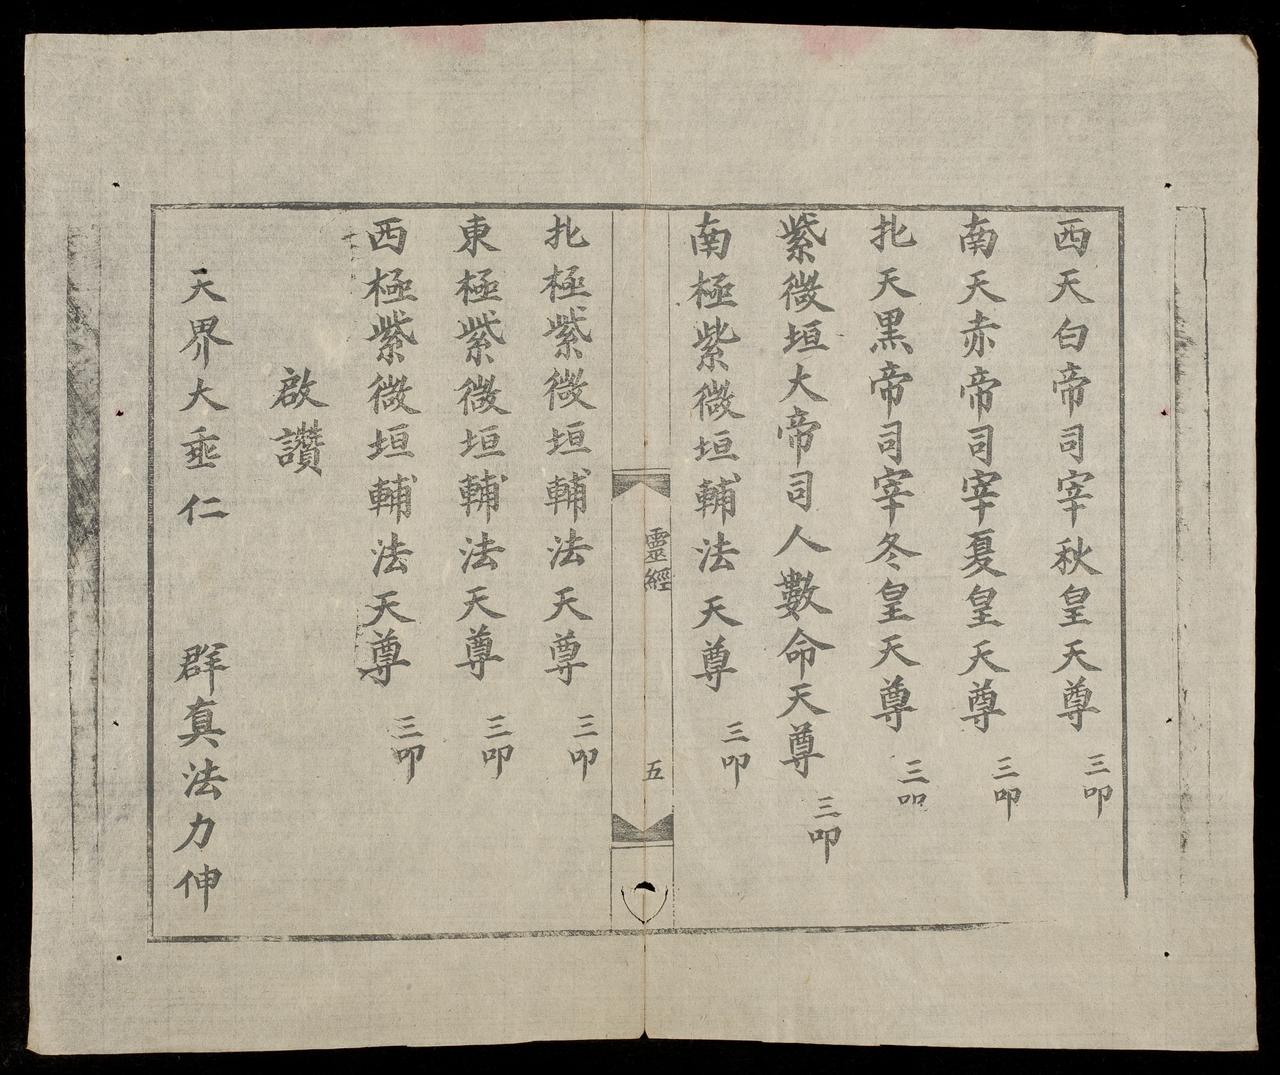 西天白帝司宰秋皇天尊 三叩
南天赤帝司宰夏皇天尊 三叩
北天黑帝司宰冬皇天尊 三叩
紫微垣大帝司人數命天尊 三叩
南極紫微垣輔法天尊 三叩
靈經 五
北極紫微垣輔法天尊 三叩
東極紫微垣輔法天尊 三叩
西極紫微垣輔法天尊 三叩
啟讚
天界大垂仁 群真法力伸